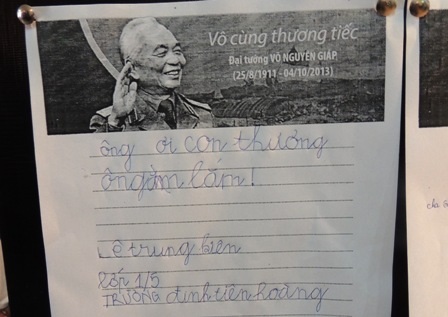 Vô cùng thương tiếc
Đại tướng VÕ NGUYÊN GIÁP
(25/8/1911 - 04/10/2013)
ông ơi con thương
ông lắm!
Lê trung biên
lớp 1/5
TRƯỜNG đinh tiên hoàng